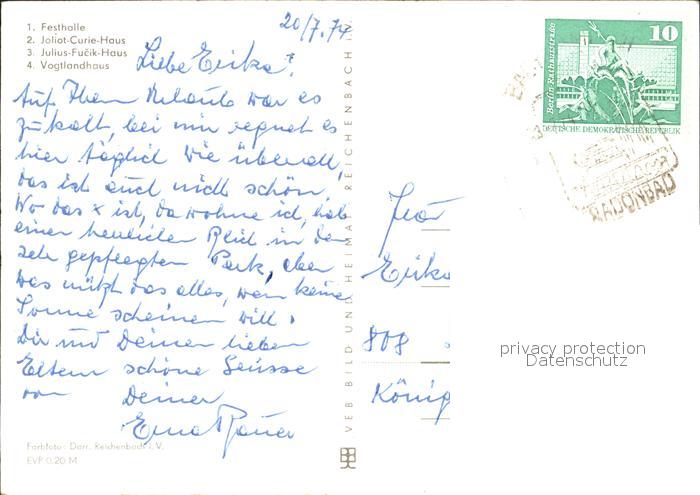 1. Festhalle
2. Joliot-Curie-Haus
3. Julius-Fučik-Haus
4. Vogtlandhaus
20/7.74
Liebe Erika!
Auf Ihrem Urlaub war es
zu kalt, bei mir regnet es
hier täglich wie überall,
das ist auch nicht schön.
Wo das x ist, da wohne ich, hab
einen herrlichen Blick in den
sehr gepflegten Park, aber
was nützt das alles, wenn keine
Sonne scheinen will.
Dir und Deinen lieben
Eltern schöne Grüsse
von Deiner
Erna
Farbfotos: Darr, Reichenbach i. V.
EVP 0,20 M
VEB BILD UND HEIMAT REICHENBACH i.V.
10
Berlin, Rathausstraße
DEUTSCHE DEMOKRATISCHE REPUBLIK
RADONBAD
Frau
Erika
808
König
privacy protection
Datenschutz